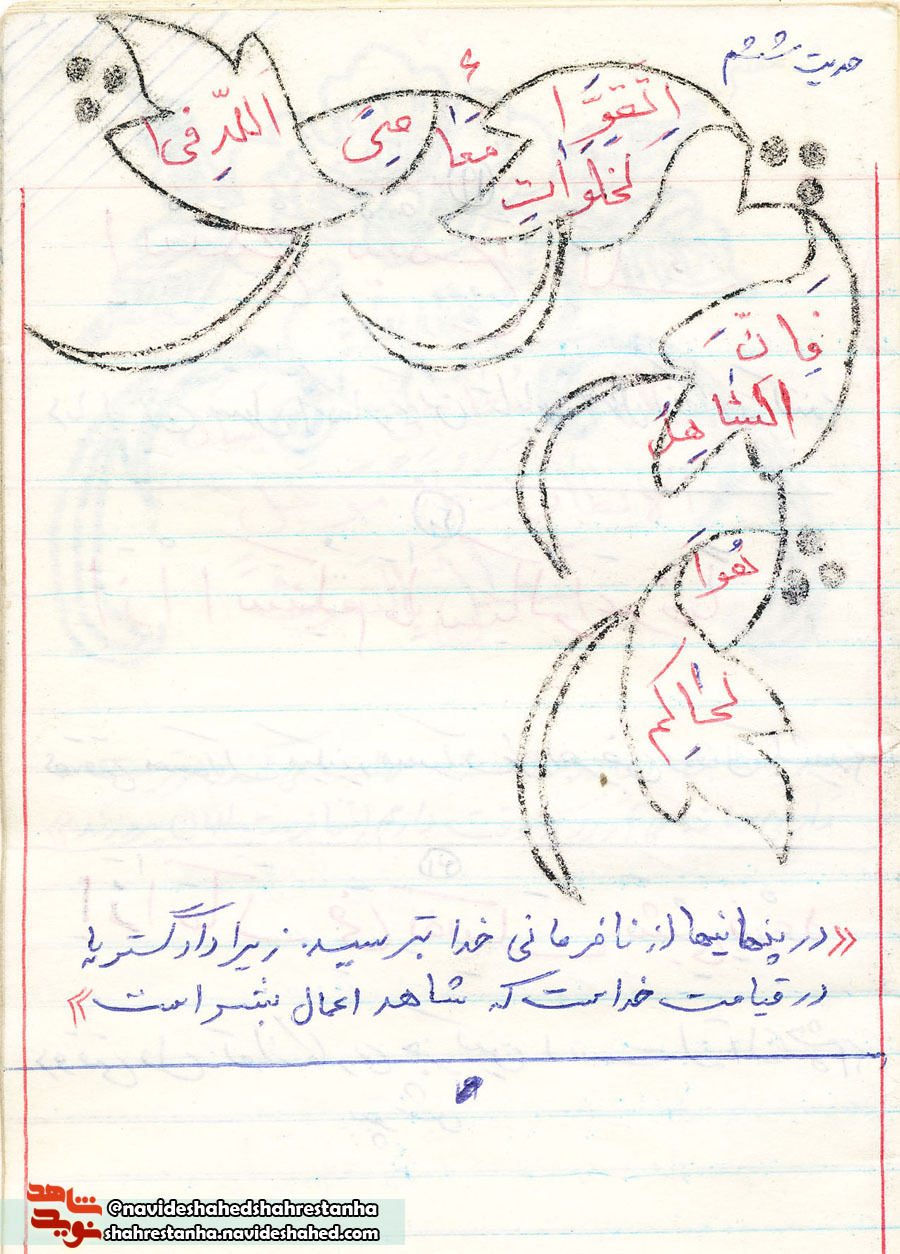 حدیث ششم
۶
اِتَّقوَّا
مَعَاصِیَ
اللّهِ فی ا
لخلَوَاتِ
فَاِنَّ
الشاهِدُ
هُوَا
لحَاکِم
«در پنهانیها از نافرمانی خدا بترسید. زیرا دادگستر یا
در قیامت خداست که شاهد اعمال بشر است»
شاهد
نوید
@navideshahedshahrestanha
shahrestanha.navideshahed.com